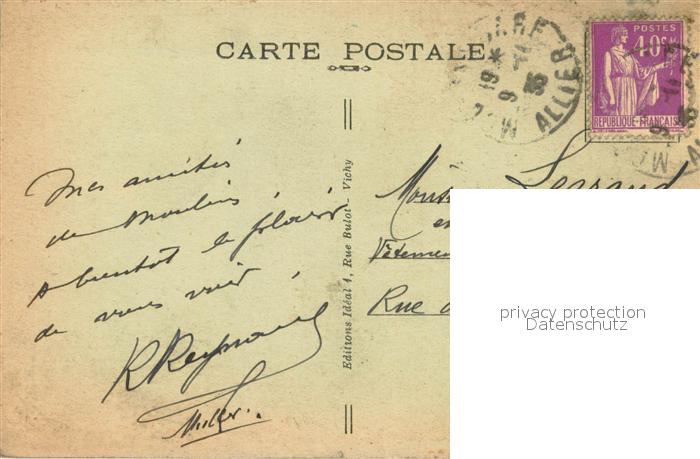 CARTE POSTALE
POSTES
40c
REPUBLIQUE FRANCAISE
ALLIER
19
9
36
Mes amitiés
de Moulins
A bientot le plaisir
de vous voir !
R Reynaud
Editions Idéal 1, Rue Bulot - Vichy
Legrand
Vêtemen
Rue d
privacy protection
Datenschutz